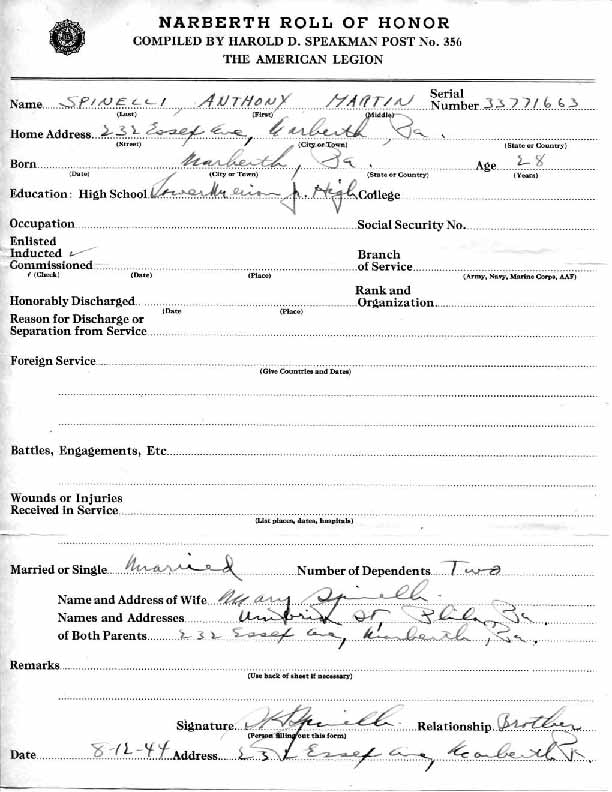 NARBERTH ROLL OF HONOR
COMPILED BY HAROLD D. SPEAKMAN POST No. 356
THE AMERICAN LEGION
Name SPINELLI, ANTHONY MARTIN Serial Number 33771663
(Last) (First) (Middle)
Home Address 232 Essex Ave, Narberth, Pa.
(Street) (City or Town) (State or Country)
Born Narberth, Pa. Age 28
(Date) (City or Town) (State or Country) (Years)
Education: High School Lower Merion Jr. High College
Occupation Social Security No.
Enlisted
Inducted ✓ Branch
Commissioned of Service
(Check) (Date) (Place) (Army, Navy, Marine Corps, AAF)
Rank and
Honorably Discharged Organization
(Date (Place)
Reason for Discharge or
Separation from Service
Foreign Service
(Give Countries and Dates)
Battles, Engagements, Etc.
Wounds or Injuries
Received in Service
(List places, dates, hospitals)
Married or Single Married Number of Dependents Two
Name and Address of Wife Mary Spinelli
Names and Addresses St, Phila, Pa.
of Both Parents 232 Essex Ave, Narberth, Pa.
Remarks
(Use back of sheet if necessary)
Signature Spinelli Relationship Brother
(Person filling out this form)
Date 8-12-44 Address 232 Essex Ave, Narberth Pa.